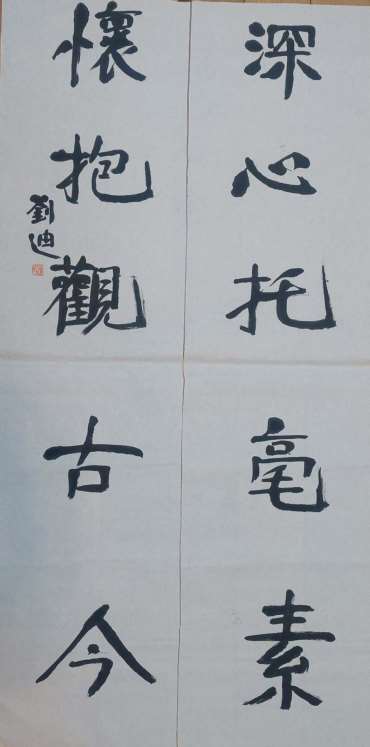 深心托毫素
懷抱觀古今
劉迪